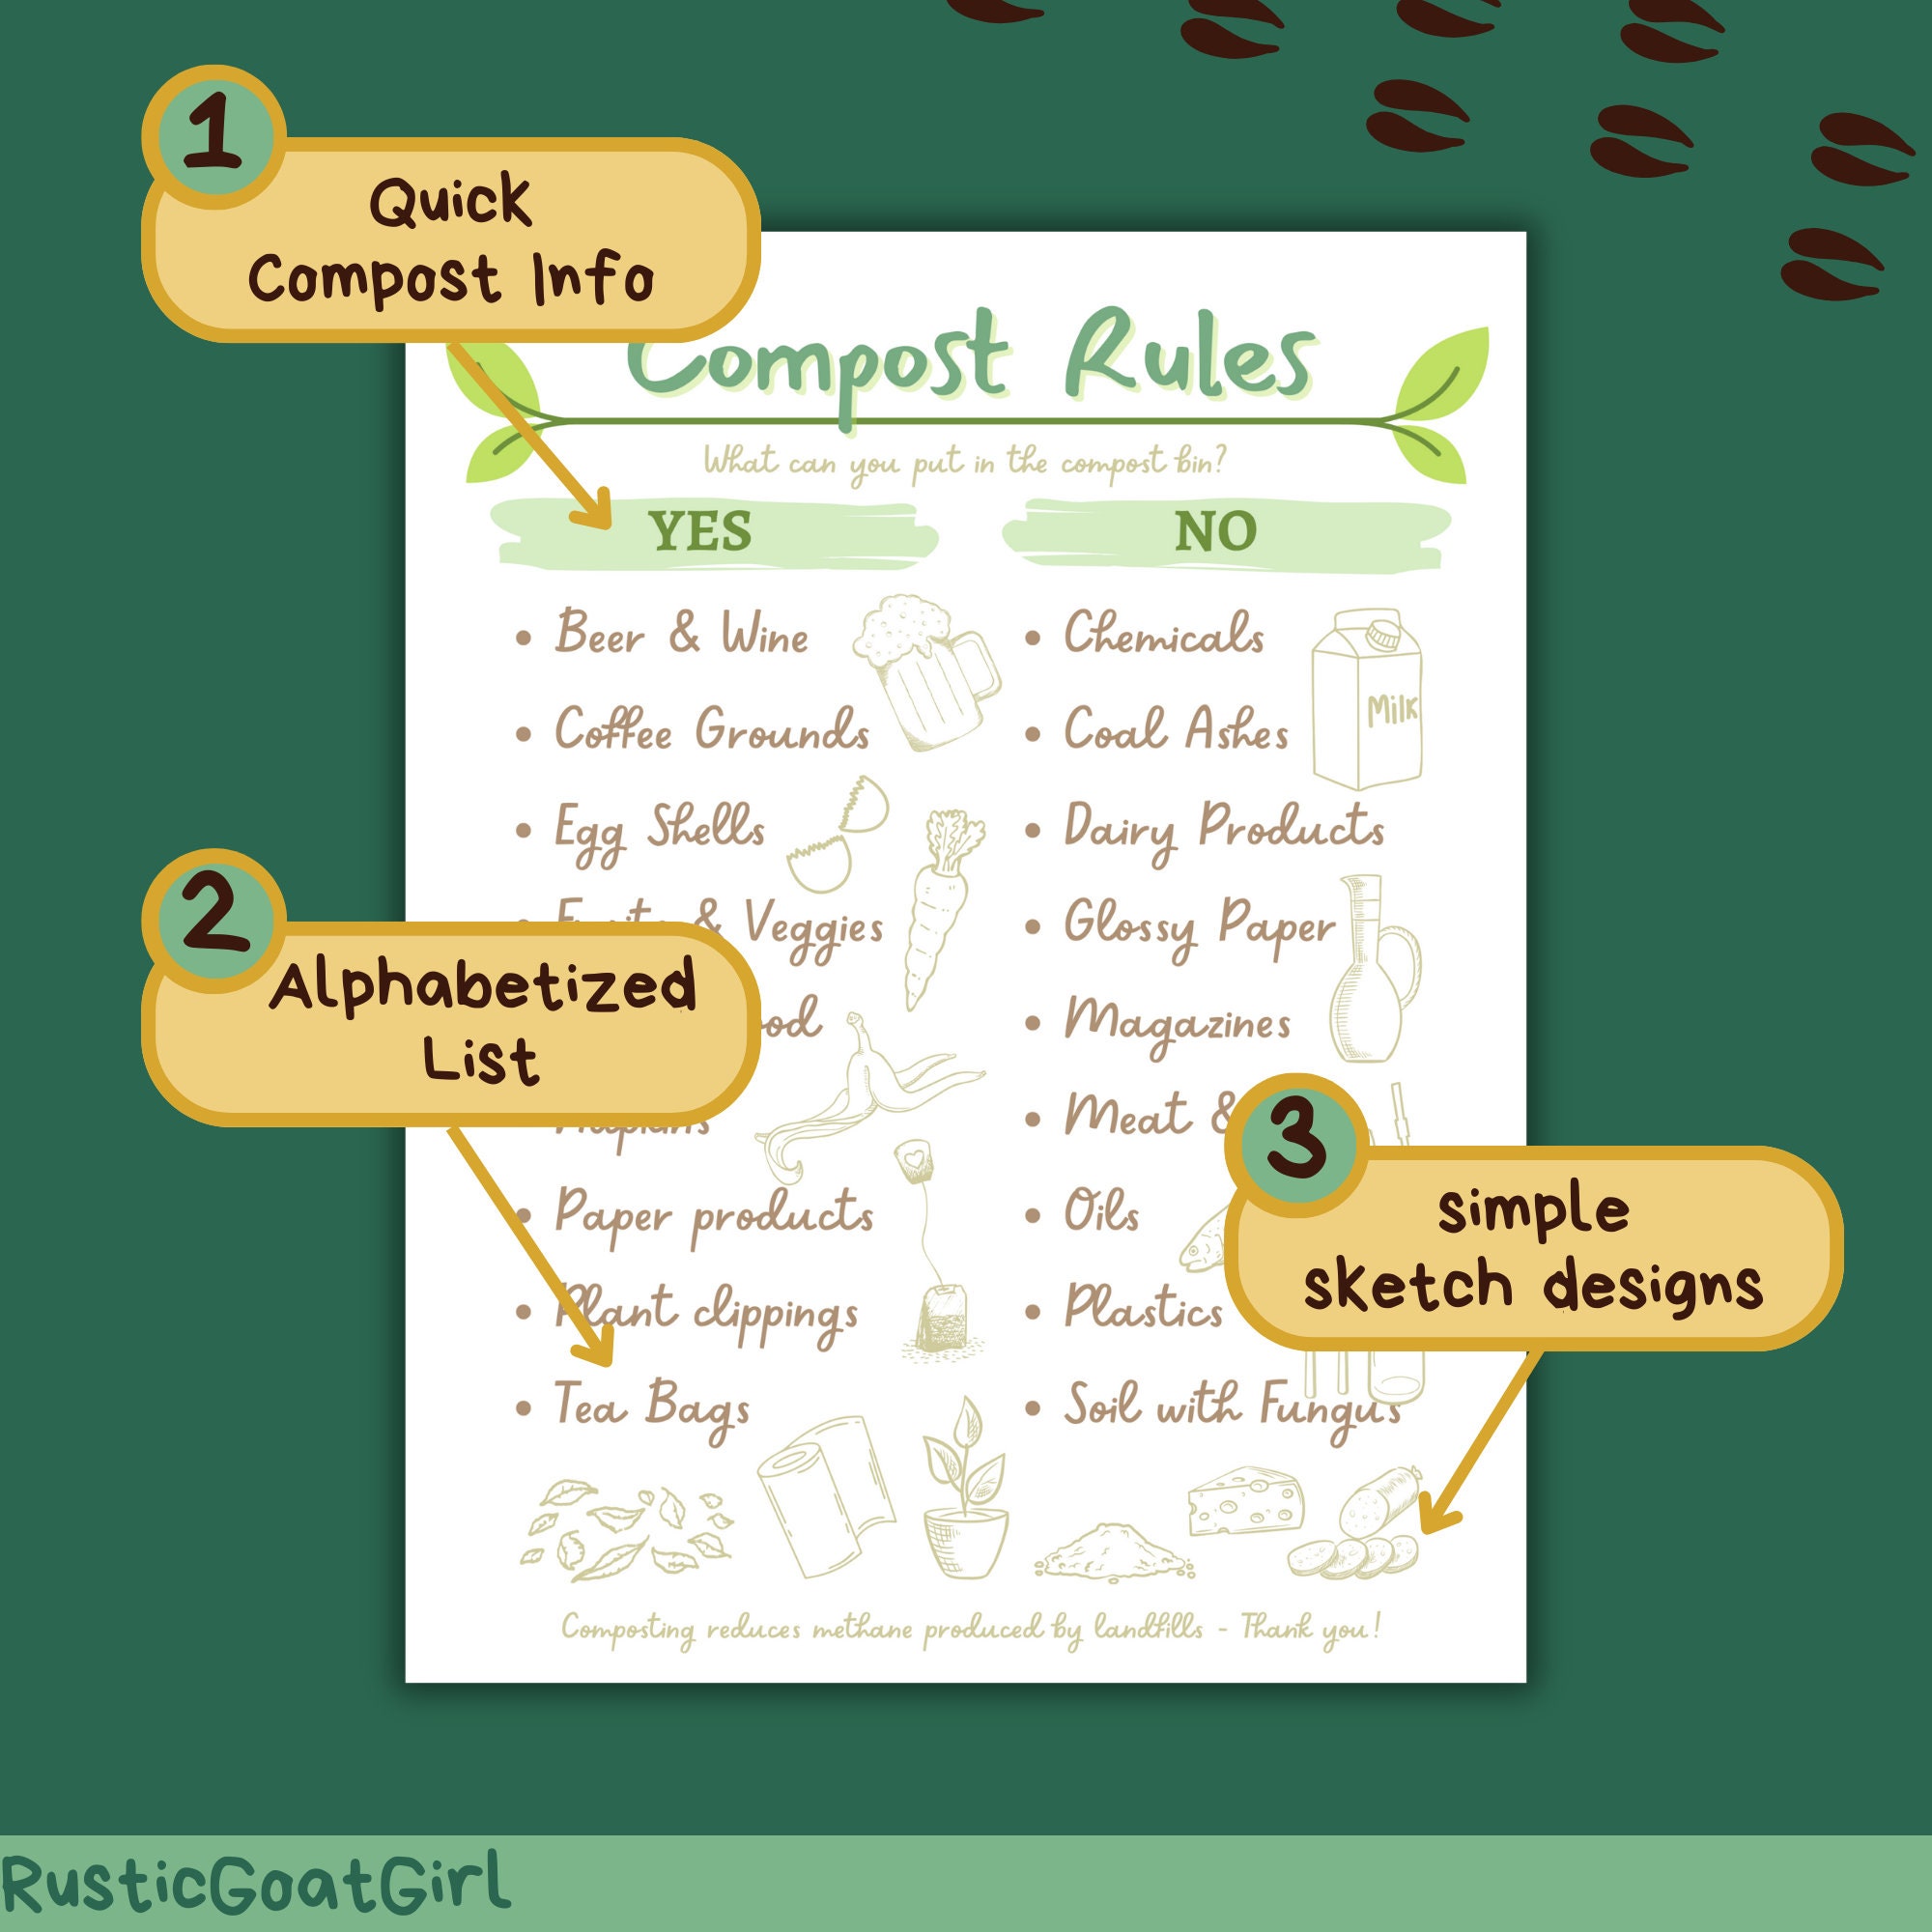 1
Quick
Compost Info
Compost Rules
What can you put in the compost bin?
YES
• Beer & Wine
• Coffee Grounds
• Egg Shells
& Veggies
2
Alphabetized
List
• Paper products
• Plant clippings
• Tea Bags
NO
• Chemicals
• Coal Ashes
• Dairy Products
• Glossy Paper
• Magazines
• Meat &
• Oils
• Plastics
• Soil with Fungus
Milk
3
simple
sketch designs
Composting reduces methane produced by landfills - Thank you!
RusticGoatGirl